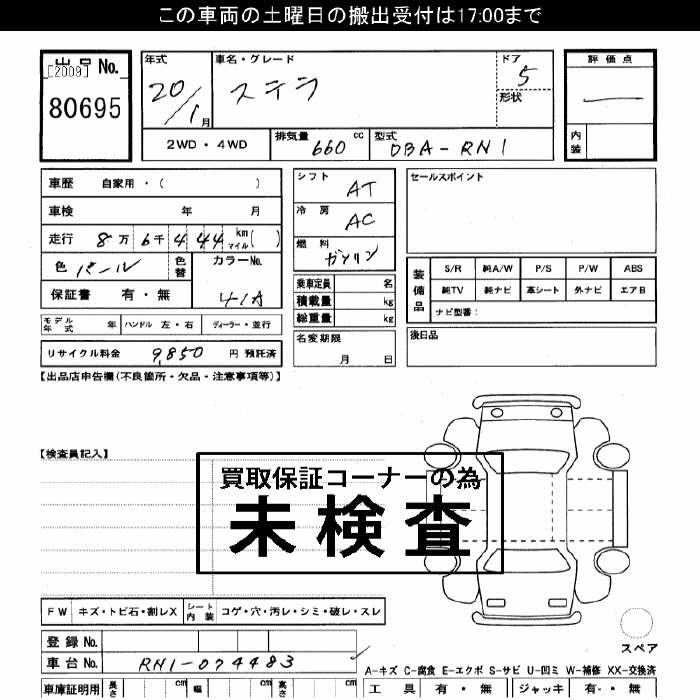 この車両の土曜日の搬出受付は17:00まで
出品 No.
[2009]
80695
年式
20/1月
車名・グレード
ステラ
ドア
5
形状
評価点
内装
2WD・4WD
排気量 660 cc
型式 DBA-RN1
車歴 自家用・( )
車検 年 月
走行 8万 6千 4 44 km マイル ( )
色 パール
色替
カラーNo.
41A
保証書 有・無
シフト AT
冷房 AC
燃料 ガソリン
乗車定員 名
積載量 kg
総重量 kg
セールスポイント
装備品
S/R 純A/W P/S P/W ABS
純TV 純ナビ 革シート 外ナビ エアB
ナビ型番:
モデル年式 年 ハンドル 左・右 ディーラー・並行
リサイクル料金 9,850 円 預託済
名変期限
月 日
後日品
【出品店申告欄(不良箇所・欠品・注意事項等)】
【検査員記入】
買取保証コーナーの為
未検査
FW キズ・トビ石・割レX シート内装 コゲ・穴・汚レ・シミ・破レ・スレ
登録 No.
車台 No. RN1-074483
スペア
A-キズ C-腐食 E-エクボ S-サビ U-凹ミ W-補修 XX-交換済
車庫証明用 長さ cm 幅 cm 高さ cm
工具 有・無 ジャッキ 有・無